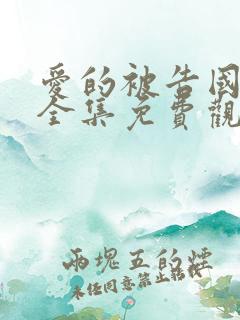 愛的被告國
全集免費觀
兩塊五的煙
未任同意禁止轉傳